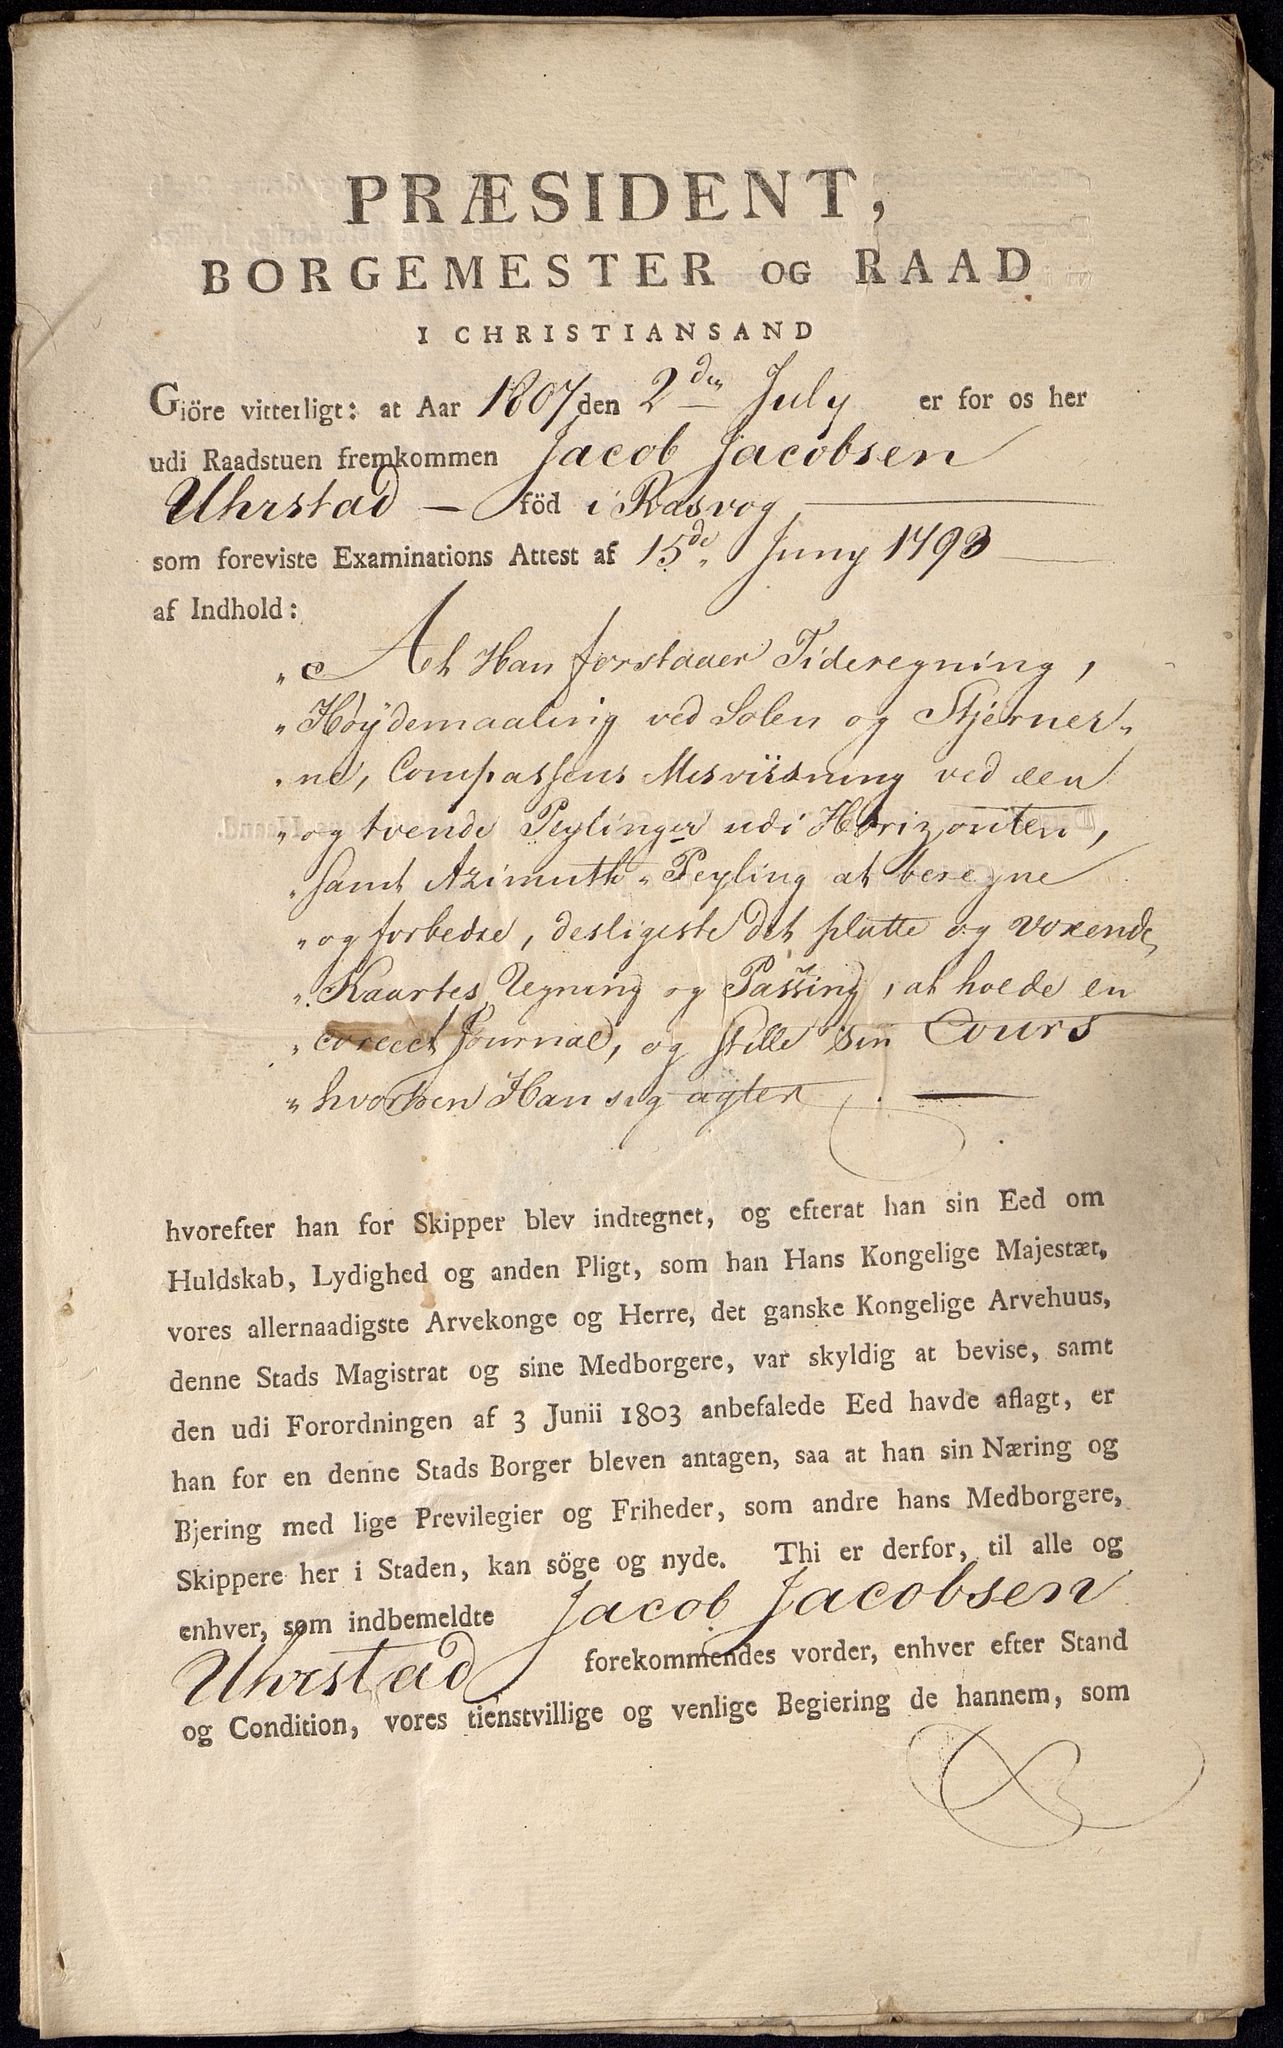 PRÆSIDENT,
BORGEMESTER OG RAAD
I CHRISTIANSAND
Giöre vitterligt: at Aar 1807 den 2den July er for os her
udi Raadstuen fremkommen Jacob Jacobsen
Uhrstad — föd i Rasvog
som foreviste Examinations Attest af 15de Juny 1793
af Indhold:
„At Han forstaaer Tideregning,
„Höÿdemaaling ved Solen og Stjerner„
„ne, Compassens Misviisning ved een
„og tvende Peylinger udi Horizonten,
„samt Azimuth„ Peyling at beregne
„og forbedre, desligeste det platte og voxende
„Kaartes Regning og Passing, at holde en
„correct Journal, og stille sin Cours
„hvorhen Han sig agter.
hvorefter han for Skipper blev indtegnet, og efterat han sin Eed om
Huldskab, Lydighed og anden Pligt, som han Hans Kongelige Majestæt,
vores allernaadigste Arvekonge og Herre, det ganske Kongelige Arvehuus,
denne Stads Magistrat og sine Medborgere, var skyldig at bevise, samt
den udi Forordningen af 3 Junii 1803 anbefalede Eed havde aflagt, er
han for en denne Stads Borger bleven antagen, saa at han sin Næring og
Bjering med lige Previlegier og Friheder, som andre hans Medborgere,
Skippere her i Staden, kan söge og nyde. Thi er derfor, til alle og
enhver, som indbemeldte Jacob Jacobsen
Uhrstad forekommendes vorder, enhver efter Stand
og Condition, vores tienstvillige og venlige Begiering de hannem, som